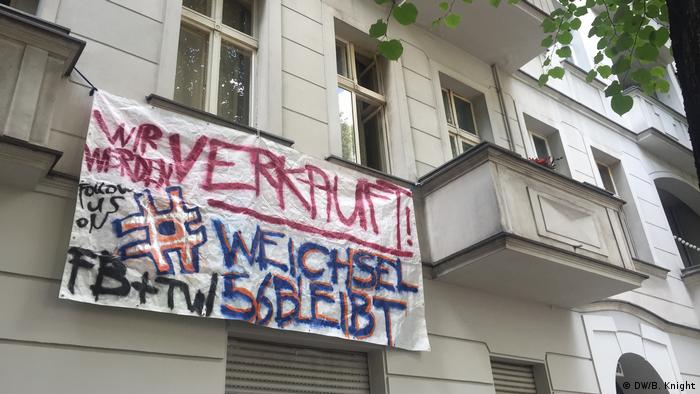 WIR
WERDEN VERKAUFT!
FOLLOW
US
ON
FB+TW/
# WEICHSEL
56BLEIBT
© DW/B. Knight